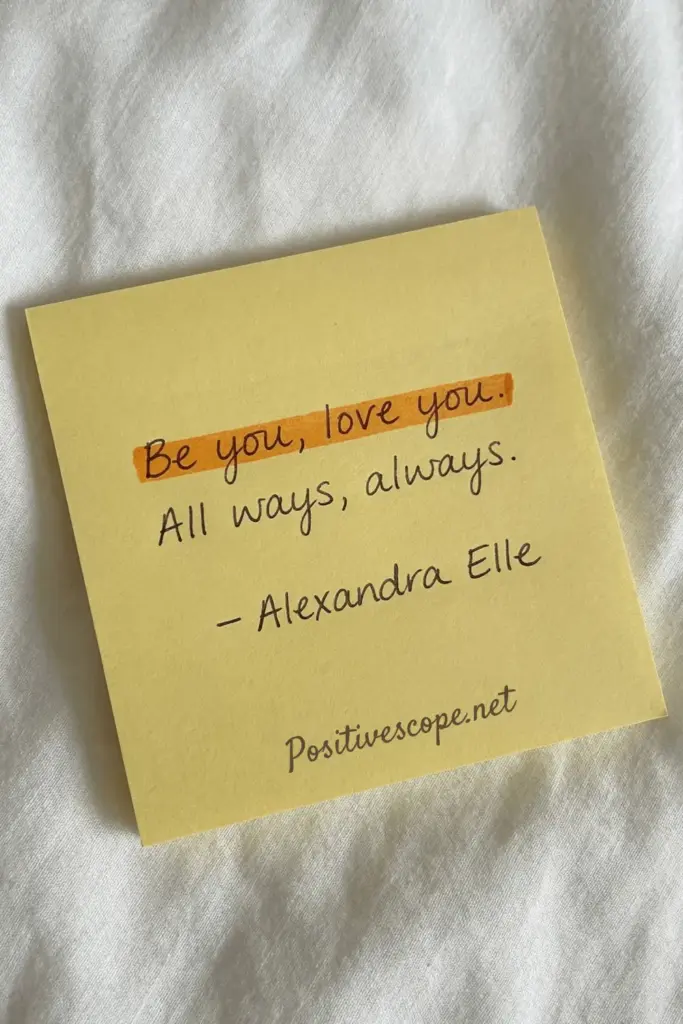 Be you, love you.
All ways, always.
– Alexandra Elle
Positivescope.net